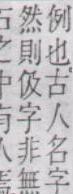 例也古人名字
然則伋字非無
石之中有人